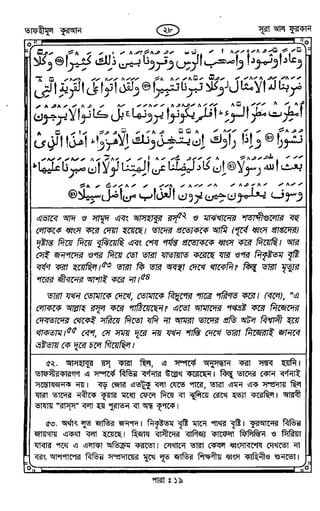 তাফহীমুল কুরআন
২৮
সূরা আল ফুরকান
وَعَادًا وَّثَمُودَا۟ وَأَصْحٰبَ الرَّسِّ وَقُرُونًا بَيْنَ ذٰلِكَ كَثِيرًا ۝ وَكُلًّا
ضَرَبْنَا لَهُ الْأَمْثَالَ ۖ وَكُلًّا تَبَّرْنَا تَتْبِيرًا ۝ وَلَقَدْ أَتَوْا عَلَى الْقَرْيَةِ الَّتِي
أُمْطِرَتْ مَطَرَ السَّوْءِ ۚ أَفَلَمْ يَكُونُوا يَرَوْنَهَا ۚ بَلْ كَانُوا لَا يَرْجُونَ
نُشُورًا ۝ وَإِذَا رَأَوْكَ إِنْ يَتَّخِذُونَكَ إِلَّا هُزُوًا ۚ أَهٰذَا الَّذِي
بَعَثَ اللّٰهُ رَسُولًا ۝ إِنْ كَادَ لَيُضِلُّنَا عَنْ آلِهَتِنَا لَوْلَا أَنْ صَبَرْنَا عَلَيْهَا ۚ
وَسَوْفَ يَعْلَمُونَ حِينَ يَرَوْنَ الْعَذَابَ مَنْ أَضَلُّ سَبِيلًا ۝
এভাবে আদ ও সামূদ এবং আসহাবুর রস্‌৫২ ও মাঝখানের শতাব্দীগুলোর বহু
লোককে ধ্বংস করে দেয়া হয়েছে। তাদের প্রত্যেককে আমি (পূর্বে ধ্বংস প্রাপ্তদের)
দৃষ্টান্ত দিয়ে দিয়ে বুঝিয়েছি এবং শেষ পর্যন্ত প্রত্যেককে ধ্বংস করে দিয়েছি। আর
সেই জনপদের ওপর দিয়ে তো তারা যাতায়াত করেছে যার ওপর নিকৃষ্টতম বৃষ্টি
বর্ষণ করা হয়েছিল।৫৩ তারা কি তার অবস্থা দেখে থাকেনি? কিন্তু তারা মৃত্যুর
পরের জীবনের আশাই করে না।৫৪
তারা যখন তোমাকে দেখে, তোমাকে বিদ্রূপের পাত্রে পরিণত করে। (বলে), “এ
লোককে আল্লাহ রসূল করে পাঠিয়েছেন? এতো আমাদের পথভ্রষ্ট করে নিজেদের
দেবতাদের থেকেই সরিয়ে দিতো যদি না আমরা তাদের প্রতি অটল বিশ্বাসী হয়ে
থাকতাম।”৫৫ বেশ, সে সময় দূরে নয় যখন শাস্তি দেখে তারা নিজেরাই জানবে
ভ্রষ্টতায় কে দূরে চলে গিয়েছিল।
৫২. আসহাবুর রস্‌ কারা ছিল, এ সম্পর্কে অনুসন্ধান করা সম্ভব হয়নি।
তাফসীরকারগণ এ সম্পর্কে বিভিন্ন বর্ণনার উল্লেখ করেছেন। কিন্তু তাদের কোন বর্ণনাই
সন্তোষজনক নয়। বড় জোর এতটুকু বলা যেতে পারে, তারা এমন এক সম্প্রদায় ছিল
যারা তাদের নবীকে কূয়ার মধ্যে ফেলে দিয়ে বা ঝুলিয়ে রেখে হত্যা করেছিল। আরবী
ভাষায় “রাস্‌স” বলা হয় পুরাতন বা অন্ধ কূপকে।
৫৩. অর্থাৎ লূত জাতির জনপদ। নিকৃষ্টতম বৃষ্টি মানে পাথর বৃষ্টি। কুরআনের বিভিন্ন
জায়গায় একথা বলা হয়েছে। হিজায বাসীদের বাণিজ্য কাফেলা ফিলিস্তিন ও সিরিয়া
যাবার পথে এ এলাকা অতিক্রম করতো। সেখানে তারা কেবল ধ্বংসাবশেষ দেখতো না
বরং আশপাশের বিভিন্ন সম্প্রদায়ের মুখে লূত জাতির শিক্ষণীয় ধ্বংস কাহিনীও শুনতো।
পারা : ১৯